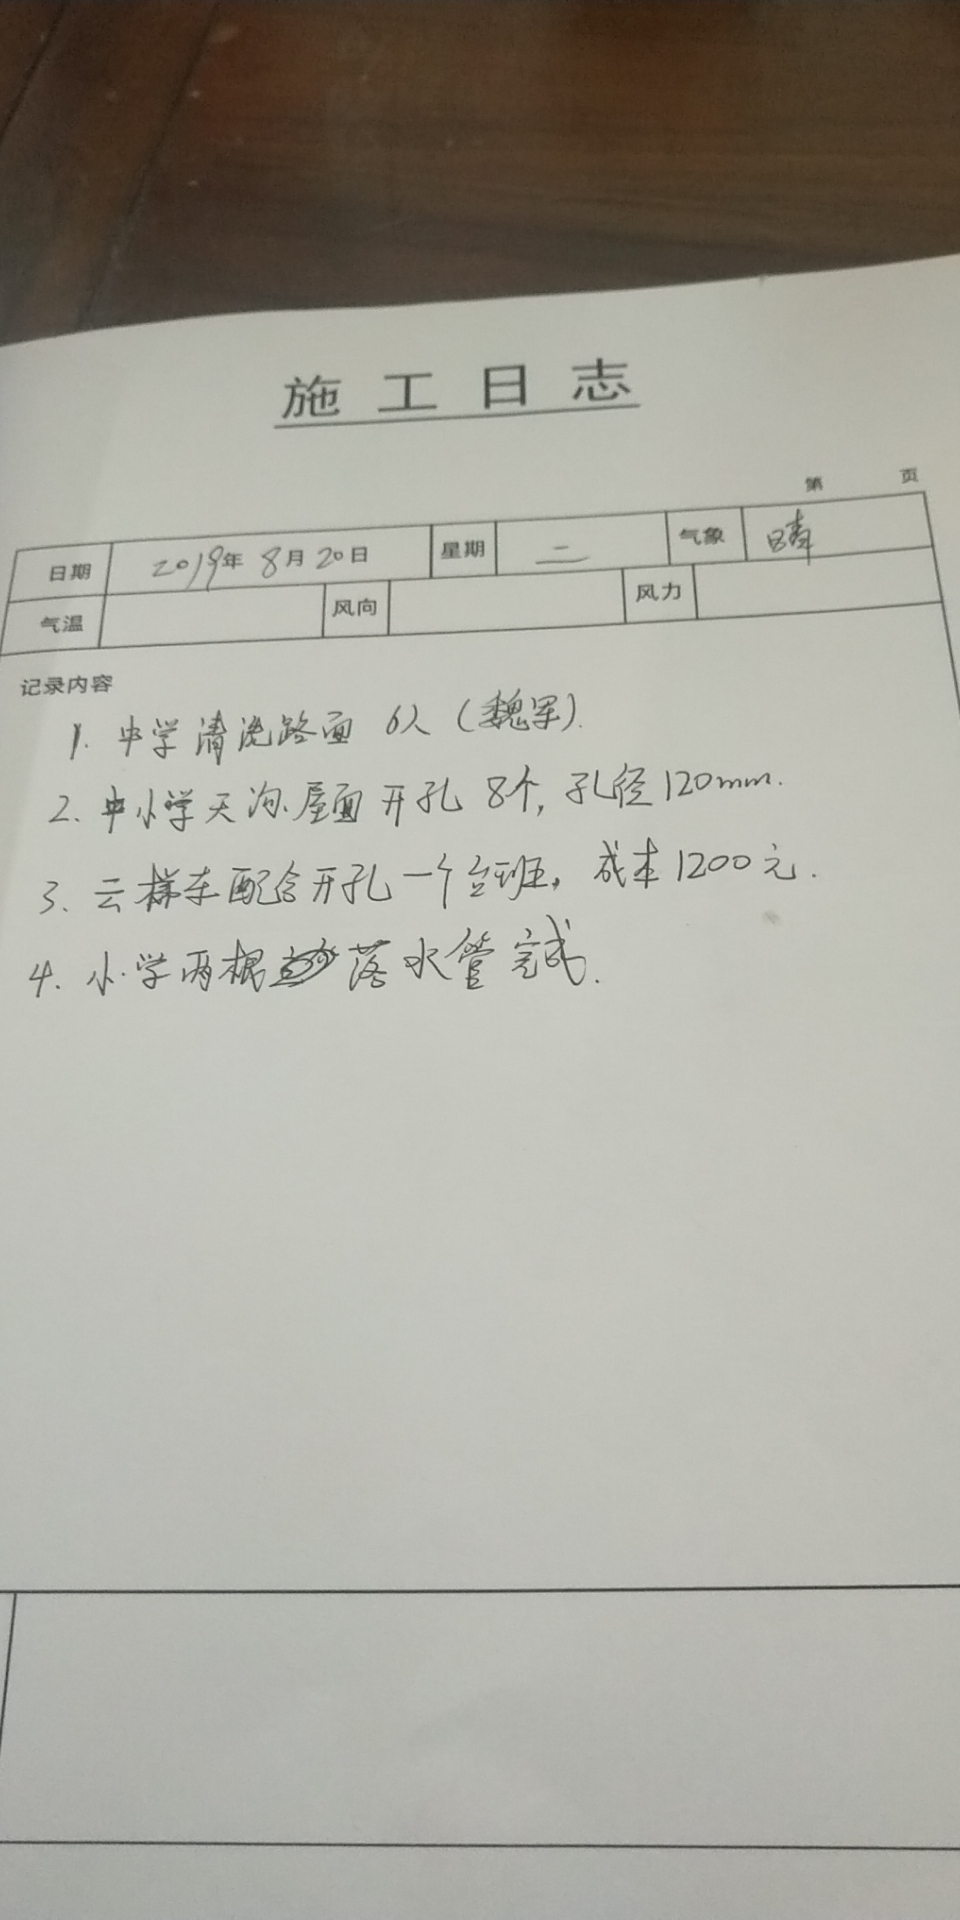 施工日志
第 页
日期 2019年8月20日 星期 二 气象 晴
气温 风向 风力
记录内容
1. 中学清洗路面 6人(魏军).
2. 中小学天沟.屋面开孔 8个,孔径120mm.
3. 云梯车配合开孔一个台班,成本1200元.
4. 小学两根落水管完成.